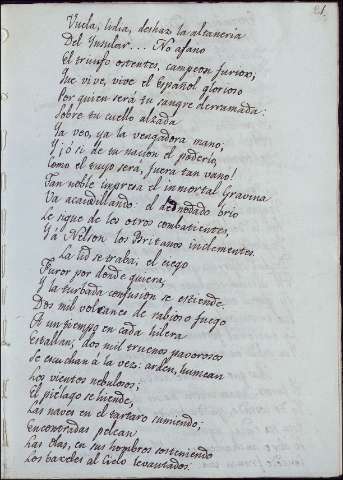 21.
Vuela, lidia, deshaz la altanería
Del Insular... No afano
El triunfo ostentes, campeon furioso;
Que vive, vive el Español glorioso
Por quien será tu sangre derramada:
Sobre tu cuello alzada
Ya veo, ya la vengadora mano;
Y ¡ó si de tu nacion el poderío,
Como el tuyo será, fuera tan vano!
Tan noble impresa el inmortal Gravina
Va acaudillando: el denodado brio
Le sigue de los otros combatientes,
Y á Nelson los Britanos inclementes.
La lid se traba; el ciego
Furor por donde quiera,
Y la turbada confusion se estiende.
Dos mil volcanes de rabioso fuego
A un tiempo en cada hilera
Estallan; dos mil truenos pavoroso
Se escuchan á la vez: arden, humean
Los vientos nebulosos;
El piélago se hiende,
Las naves en el tartaro sumiendo;
Encontradas pelean
Las Olas, en sus hombros sosteniendo
Los baxeles al Cielo levantados.